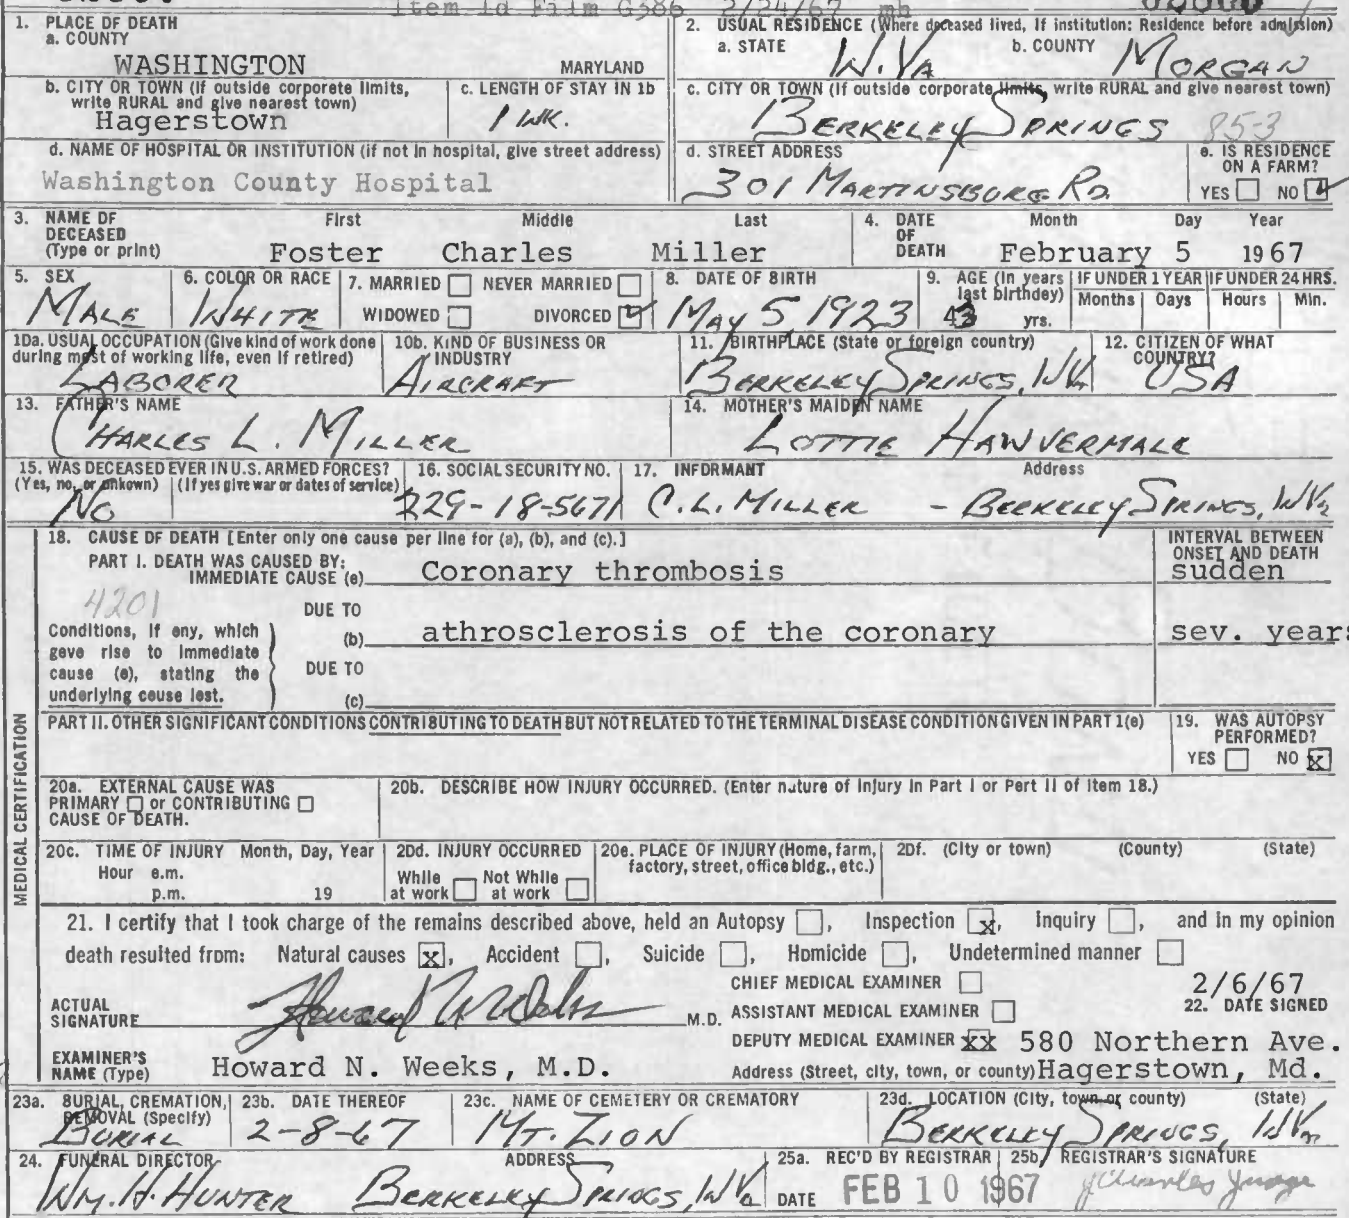 Item 1d Film G386 2/24/67 mh
1. PLACE OF DEATH
a. COUNTY
WASHINGTON MARYLAND
b. CITY OR TOWN (If outside corporate limits, write RURAL and give nearest town)
Hagerstown
c. LENGTH OF STAY IN 1b
1 WK.
d. NAME OF HOSPITAL OR INSTITUTION (if not in hospital, give street address)
Washington County Hospital
2. USUAL RESIDENCE (Where deceased lived, If institution: Residence before admission)
a. STATE
W. VA
b. COUNTY
MORGAN
c. CITY OR TOWN (If outside corporate limits, write RURAL and give nearest town)
BERKELEY SPRINGS 853
d. STREET ADDRESS
301 MARTINSBURG RD.
e. IS RESIDENCE ON A FARM?
YES NO
3. NAME OF DECEASED (Type or print)
First Middle Last
Foster Charles Miller
4. DATE OF DEATH
Month Day Year
February 5 1967
5. SEX
MALE
6. COLOR OR RACE
WHITE
7. MARRIED NEVER MARRIED
WIDOWED DIVORCED
8. DATE OF BIRTH
MAY 5 1923
9. AGE (In years last birthday)
43 yrs.
IF UNDER 1 YEAR
Months Days
IF UNDER 24 HRS.
Hours Min.
10a. USUAL OCCUPATION (Give kind of work done during most of working life, even if retired)
LABORER
10b. KIND OF BUSINESS OR INDUSTRY
AIRCRAFT
11. BIRTHPLACE (State or foreign country)
BERKELEY SPRINGS, WVa
12. CITIZEN OF WHAT COUNTRY?
USA
13. FATHER'S NAME
CHARLES L. MILLER
14. MOTHER'S MAIDEN NAME
LOTTIE HAWVERMALE
15. WAS DECEASED EVER IN U.S. ARMED FORCES?
(Yes, no, or unkown) (If yes give war or dates of service)
NO
16. SOCIAL SECURITY NO.
229-18-5671
17. INFORMANT Address
C. L. MILLER - BERKELEY SPRINGS, WVa
MEDICAL CERTIFICATION
18. CAUSE OF DEATH [Enter only one cause per line for (a), (b), and (c).]
PART I. DEATH WAS CAUSED BY:
IMMEDIATE CAUSE (a) Coronary thrombosis
INTERVAL BETWEEN ONSET AND DEATH
sudden
4201
DUE TO
Conditions, if any, which gave rise to immediate cause (a), stating the underlying cause last.
(b) athrosclerosis of the coronary sev. years
DUE TO
(c)
PART II. OTHER SIGNIFICANT CONDITIONS CONTRIBUTING TO DEATH BUT NOT RELATED TO THE TERMINAL DISEASE CONDITION GIVEN IN PART 1(a)
19. WAS AUTOPSY PERFORMED?
YES NO X
20a. EXTERNAL CAUSE WAS
PRIMARY or CONTRIBUTING
CAUSE OF DEATH.
20b. DESCRIBE HOW INJURY OCCURRED. (Enter nature of injury in Part I or Part II of item 18.)
20c. TIME OF INJURY Month, Day, Year
Hour a.m.
p.m. 19
20d. INJURY OCCURRED
While at work Not While at work
20e. PLACE OF INJURY (Home, farm, factory, street, office bldg., etc.)
20f. (City or town) (County) (State)
21. I certify that I took charge of the remains described above, held an Autopsy , Inspection x, Inquiry , and in my opinion
death resulted from: Natural causes x, Accident , Suicide , Homicide , Undetermined manner
CHIEF MEDICAL EXAMINER
2/6/67
22. DATE SIGNED
ACTUAL SIGNATURE Howard N. Weeks M.D.
ASSISTANT MEDICAL EXAMINER
DEPUTY MEDICAL EXAMINER xx 580 Northern Ave.
EXAMINER'S NAME (Type) Howard N. Weeks, M.D.
Address (Street, city, town, or county) Hagerstown, Md.
23a. BURIAL, CREMATION, REMOVAL (Specify)
BURIAL
23b. DATE THEREOF
2-8-67
23c. NAME OF CEMETERY OR CREMATORY
MT. ZION
23d. LOCATION (City, town or county) (State)
BERKELEY SPRINGS, WVa
24. FUNERAL DIRECTOR ADDRESS
WM. H. HUNTER BERKELEY SPRINGS, WVa
25a. REC'D BY REGISTRAR
DATE FEB 10 1967
25b. REGISTRAR'S SIGNATURE
Charles Judge